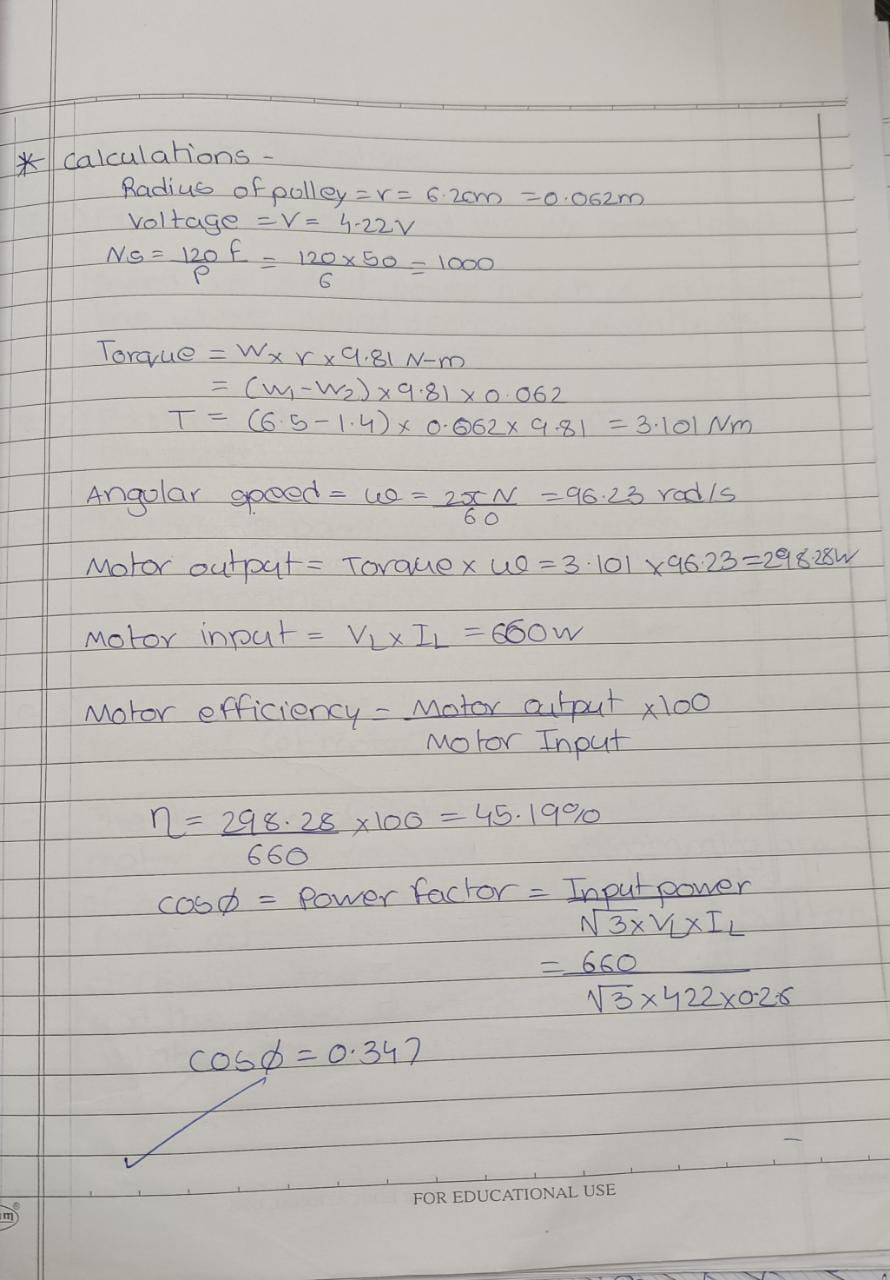 * Calculations -
Radius of pulley = r = 6.2cm = 0.062m
Voltage = V = 4.22V
NS = 120 f / P = 120 x 50 / 6 = 1000
Torque = W x r x 9.81 N-m
= (W1 - W2) x 9.81 x 0.062
T = (6.5 - 1.4) x 0.062 x 9.81 = 3.101 Nm
Angular speed = ω = 2πN / 60 = 96.23 rad/s
Motor output = Torque x ω = 3.101 x 96.23 = 298.28W
Motor input = VL x IL = 660W
Motor efficiency = Motor output / Motor Input x 100
η = 298.28 / 660 x 100 = 45.19%
cosϕ = Power factor = Input power / √3 x VL x IL
= 660 / √3 x 422 x 0.26
cosϕ = 0.347
FOR EDUCATIONAL USE